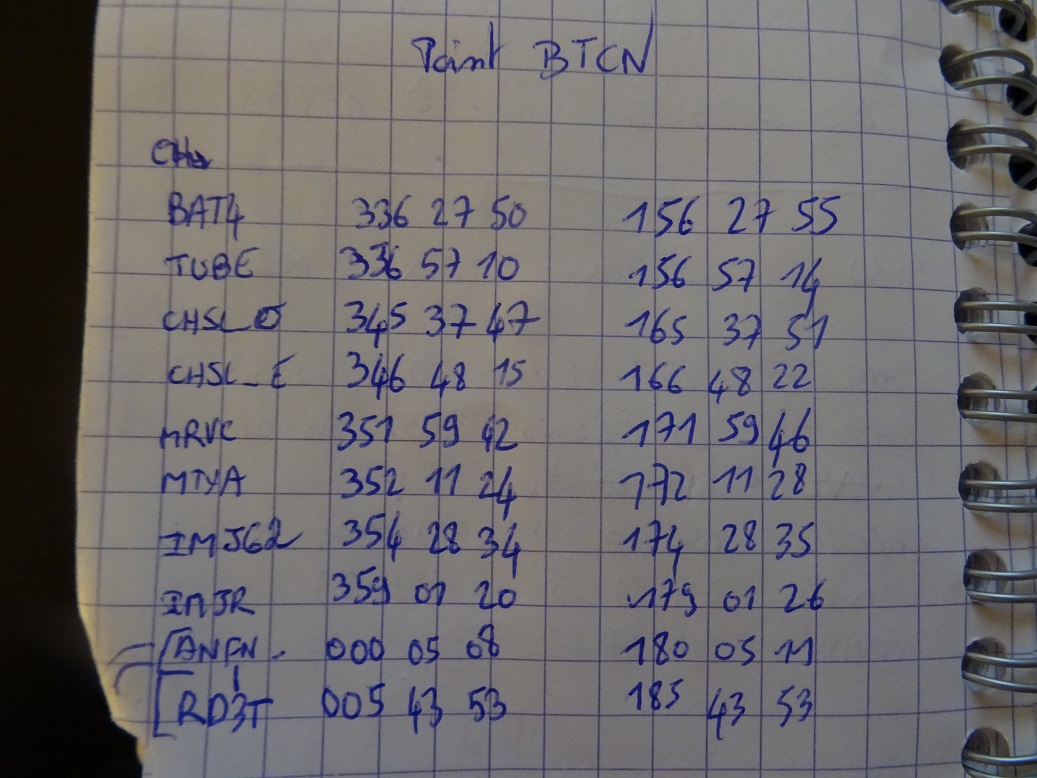 Point BTCN
BAT4 336 27 50 156 27 55
TUBE 336 57 10 156 57 14
CHSL_O 345 37 47 165 37 51
CHSL_E 346 48 15 166 48 22
MRVC 351 59 42 171 59 46
MTYA 352 11 24 172 11 28
IMJG2 354 28 34 174 28 35
IMJR 359 01 20 179 01 26
ANFN 000 05 08 180 05 11
RD3T 005 43 53 185 43 53